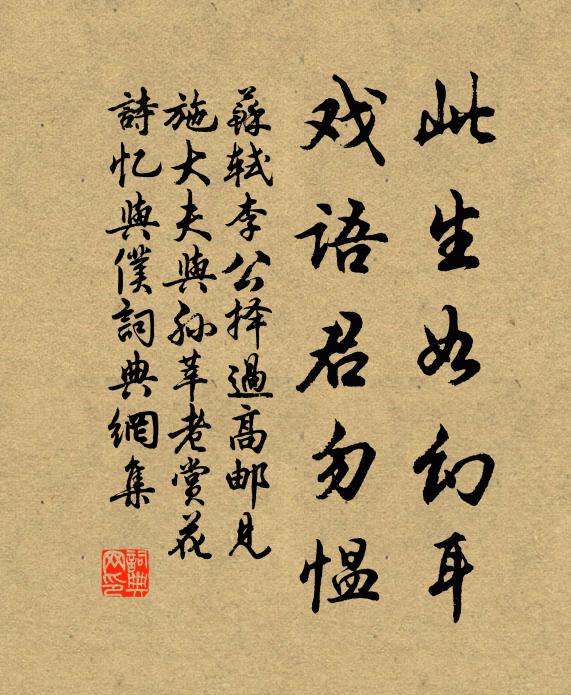 此生如幻耳
戏语君勿愠
蘇轼李公择過高邮見
施大夫與孙莘老赏花
詩忆與僕詞典網集
詞典網印